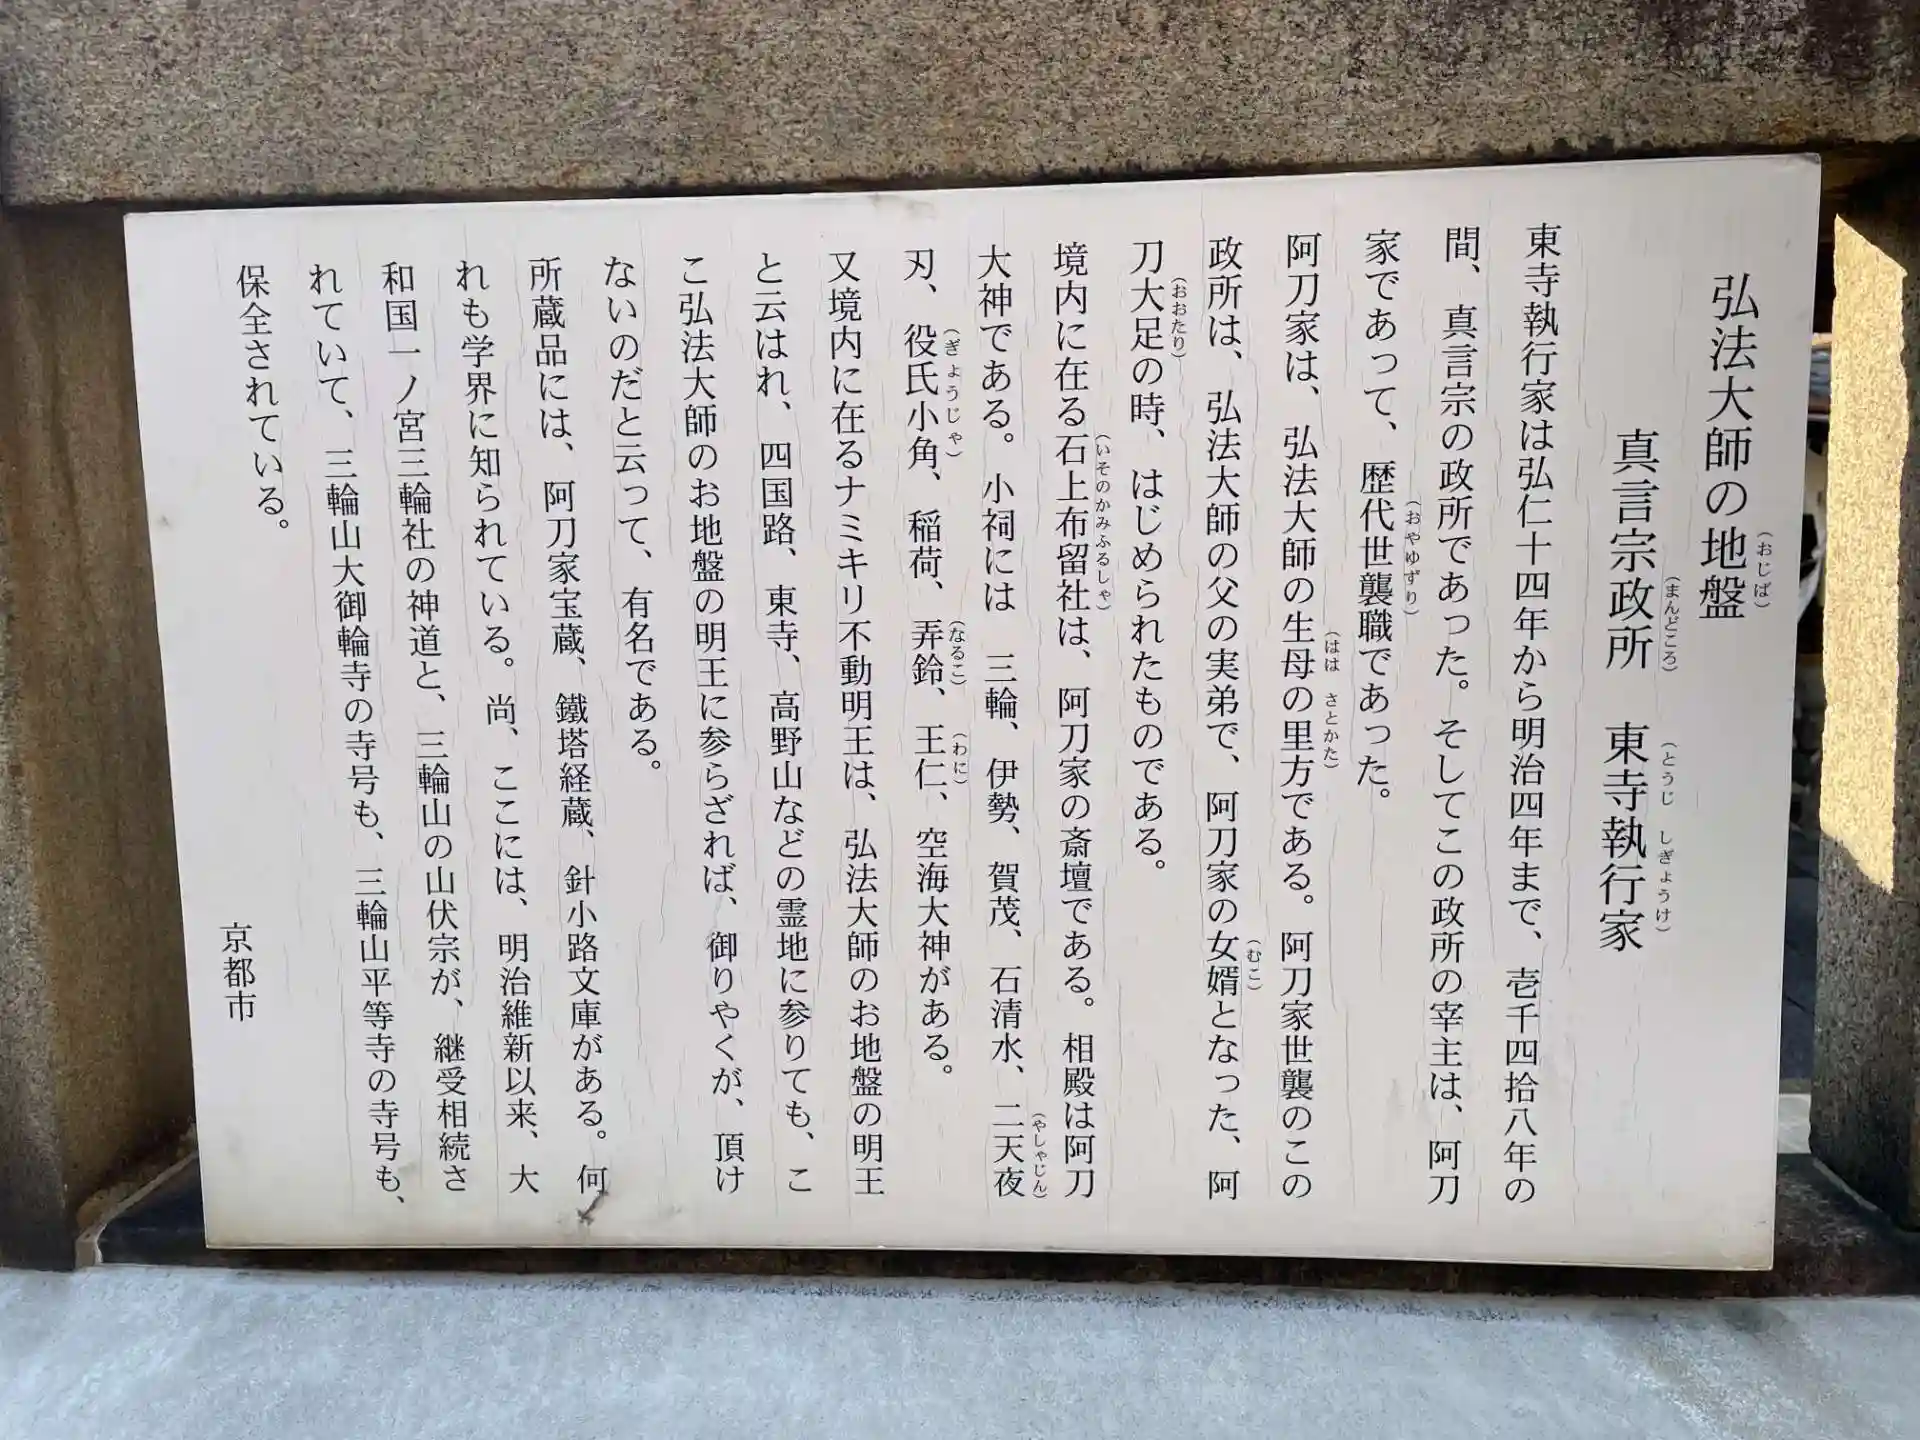 弘法大師の地盤(おじば)
真言宗政所(まんどころ) 東寺執行家(とうじ しぎょうけ)
東寺執行家は弘仁十四年から明治四年まで、壱千四拾八年の
間、真言宗の政所であった。そしてこの政所の宰主は、阿刀
家であって、歴代世襲職(おやゆずり)であった。
阿刀家は、弘法大師の生母の里方(はは さとかた)である。阿刀家世襲のこの
政所は、弘法大師の父の実弟で、阿刀家の女婿(むこ)となった、阿
刀大足(おおたり)の時、はじめられたものである。
境内に在る石上布留社(いそのかみふるしゃ)は、阿刀家の斎壇である。相殿は阿刀
大神である。小祠には 三輪、伊勢、賀茂、石清水、二天夜(やしゃじん)
刃、役氏小角(ぎょうじゃ)、稲荷、弄鈴(なるこ)、王仁(わに)、空海大神がある。
又境内に在るナミキリ不動明王は、弘法大師のお地盤の明王
と云はれ、四国路、東寺、高野山などの霊地に参りても、こ
こ弘法大師のお地盤の明王に参らざれば、御りやくが、頂け
ないのだと云って、有名である。
所蔵品には、阿刀家宝蔵、鐵塔経蔵、針小路文庫がある。何
れも学界に知られている。尚、ここには、明治維新以来、大
和国一ノ宮三輪社の神道と、三輪山の山伏宗が、継受相続さ
れていて、三輪山大御輪寺の寺号も、三輪山平等寺の寺号も、
保全されている。
京都市